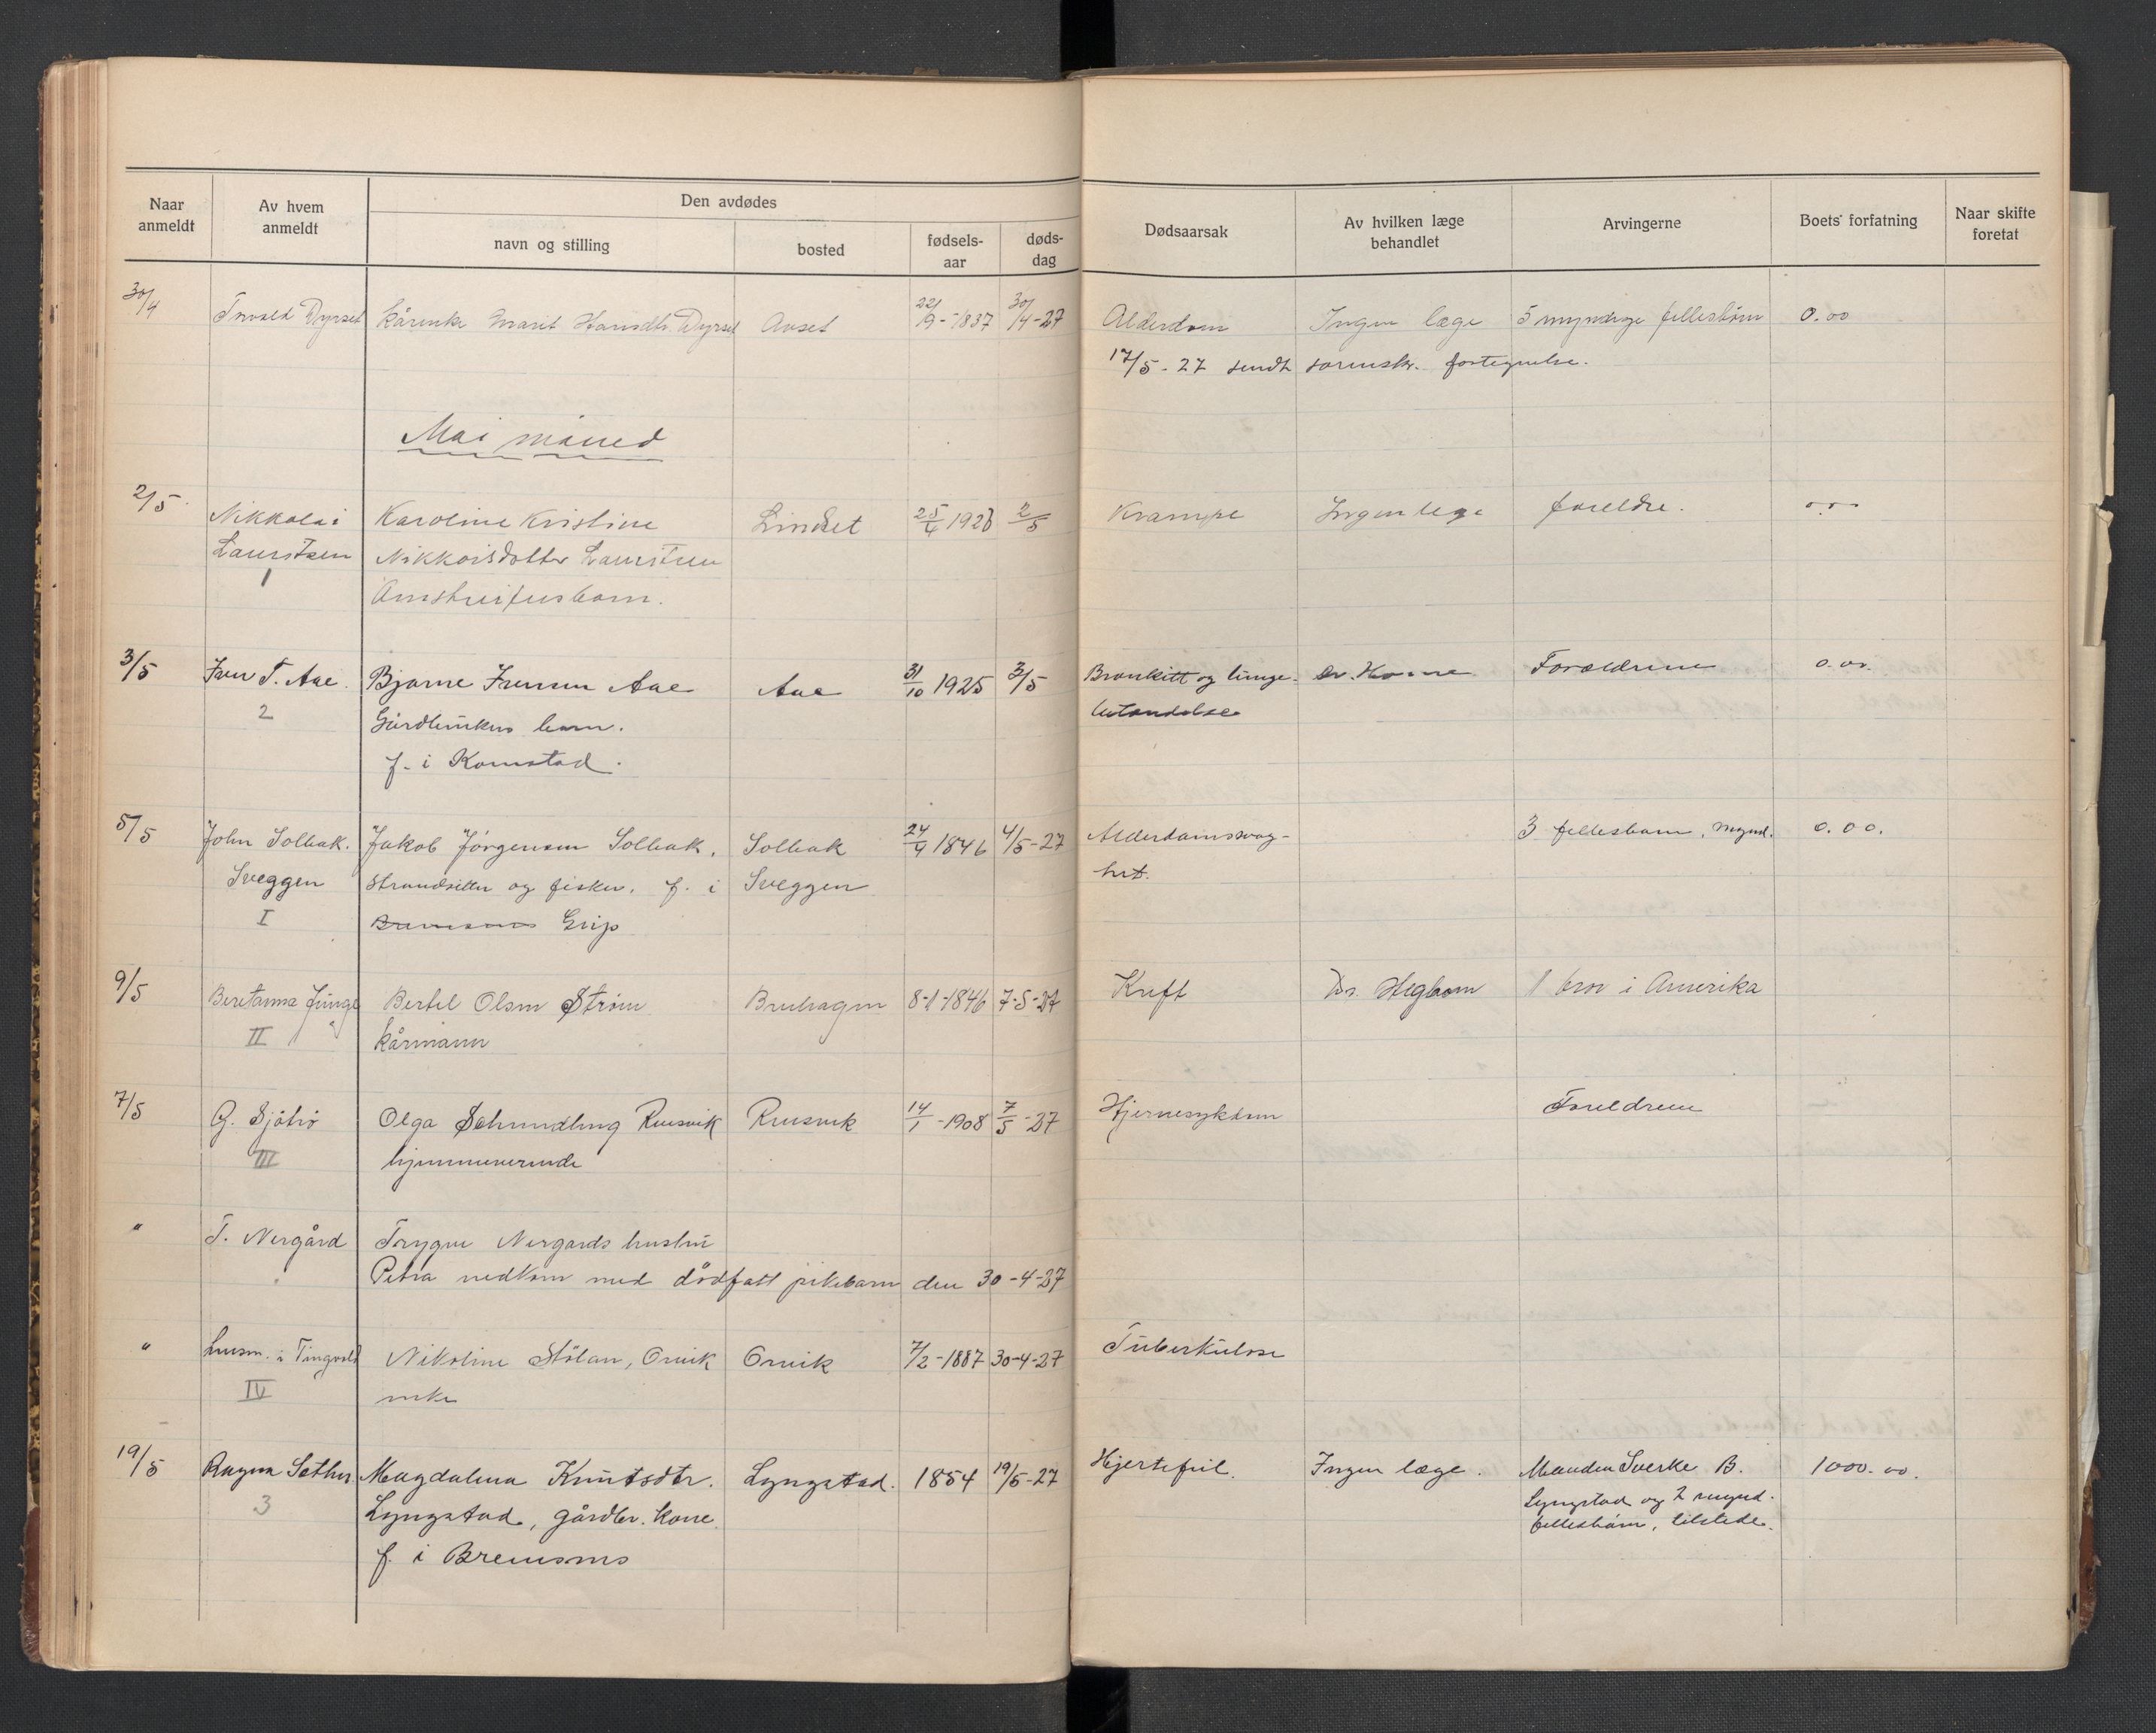 Naar anmeldt
Av hvem anmeldt
Den avdødes
navn og stilling
bosted
fødsels-aar
døds-dag
Dødsaarsak
Av hvilken læge behandlet
Arvingerne
Boets' forfatning
Naar skifte foretat
30/4 Dyrset Marit Hansdtr Dyrset Avset 22/9-1837 30/4-27 Alderdom Ingen læge 5 myndige fellesbörn 0.00
17/5-27 sendt sorenskr. fortegnelse.
Mai måned
2/5 Nikkolai Karoline Kristine Lindset 25/4 2/5 Krampe Ingen lege foreldre. 0.00
Lauritsen Lauritsen
1
3/5 Iver T. Aae. Bjarne Iversen Aae Aae 31/10 1925 3/5 Bronkitt og lunge- Dr. Forældrene 0.00.
2 Gårdbrukers barn. betændelse
f. i Kornstad.
5/5 John Solbak. Jakob Jörgensen Solbak, Solbak 24/9 1846 4/5-27 Alderdomssvag- 3 fellesbarn, mynd. 0.00.
Sveggen strandsitter og fisker. f. i Sveggen het.
I Bremsnes Grip
9/5 Beretanna Junge Bertel Olsen Ström Bruhagen 8-1-1846 7-5-27 Kreft Dr. Hegbom 1 bror i Amerika
II kårmann
7/5 G. Sjöhö Olga 14/1-1908 7/5-27 Hjernesykdom Foreldrene
III hjemmeværende
" T. Nergård Trygve Nergards hustru
Petra nedkom med dödfött pikebarn den 30-4-27
" Lensm. i Tingvold Nikoline Stölan, Orvik Orvik 7/2-1887 30-4-27 Tuberkulose
IV enke
19/5 Ragna Sether. Magdalena Knutsdtr. Lyngstad. 1854 19/5-27 Hjertefeil. Ingen læge. Manden Sverke B. 1000.00.
3 Lyngstad, gårdbr. kone Lyngstad og 2 mynd.
f. i Bremsnes fellesbörn, tilstede.